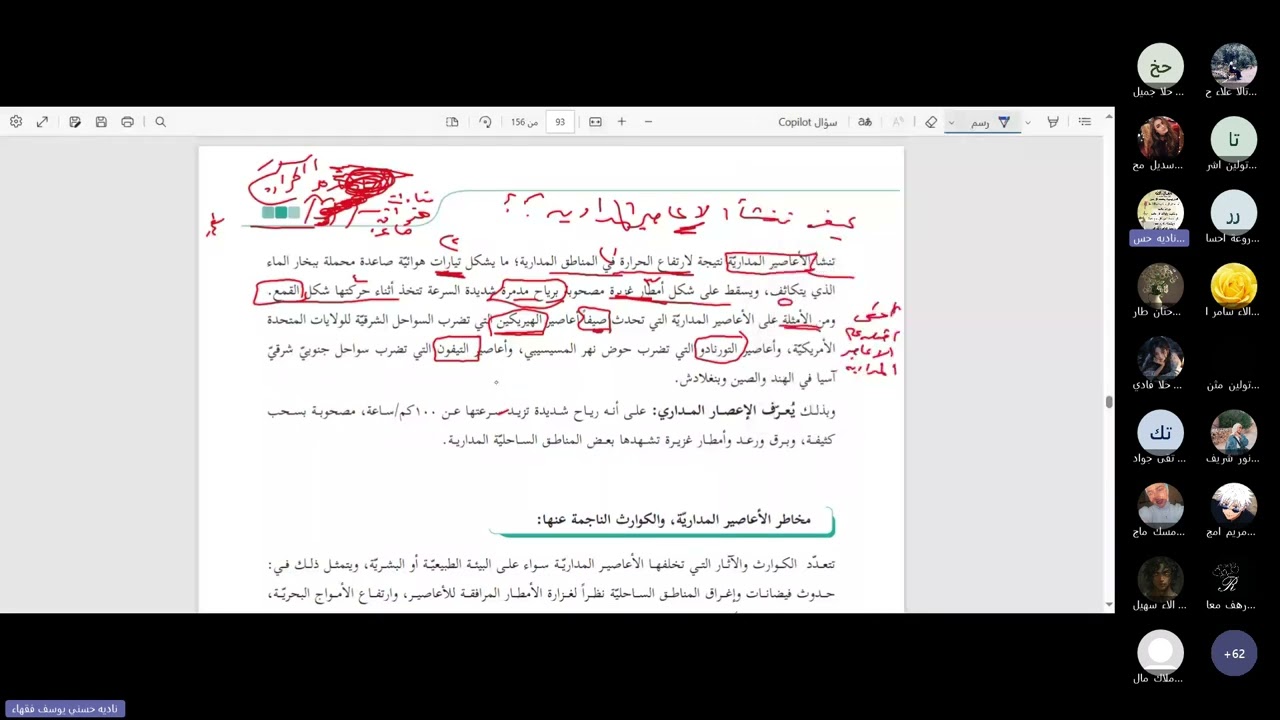 سؤال Copilot
رسم
93
من 156
كيف تنشأ الأعاصير المدارية ؟؟
تنشأ الأعاصير المداريّة نتيجة لارتفاع الحرارة في المناطق المدارية؛ ما يشكل تيارات هوائيّة صاعدة محملة ببخار الماء
الذي يتكاثف، ويسقط على شكل أمطار غزيرة مصحوبة برياح مدمرة شديدة السرعة تتخذ أثناء حركتها شكل القمع.
ومن الأمثلة على الأعاصير المداريّة التي تحدث صيفاً أعاصير الهيريكين التي تضرب السواحل الشرقيّة للولايات المتحدة
الأمريكيّة، وأعاصير التورنادو التي تضرب حوض نهر المسيسيبي، وأعاصير التيفون التي تضرب سواحل جنوبيّ شرقيّ
آسيا في الهند والصين وبنغلادش.
الأعاصير
المدارية
وبذلك يُعرّف الإعصار المداري: على أنه رياح شديدة تزيد سرعتها عن ١٠٠كم/ساعة، مصحوبة بسحب
كثيفة، وبرق ورعد وأمطار غزيرة تشهدها بعض المناطق الساحليّة المدارية.
مخاطر الأعاصير المداريّة، والكوارث الناجمة عنها:
تتعدّد الكوارث والآثار التي تخلفها الأعاصير المداريّة سواء على البيئة الطبيعيّة أو البشريّة، ويتمثل ذلك في:
حدوث فيضانات وإغراق المناطق الساحليّة نظراً لغزارة الأمطار المرافقة للأعاصير، وارتفاع الأمواج البحريّة،
حخ
حلا جميل...
تالا علاء ح...
سديل مح...
تا
تولين اشر...
ناديه حس...
رر
روعة احسا...
حنان طار...
الاء سامر ا...
حلا فادي...
تولين مثن...
تك
تقى جواد...
نور شريف...
مسك ماج...
مريم امج...
الاء سهيل...
R
رهف معا...
ملاك مال...
+62
ناديه حسني يوسف فقهاء